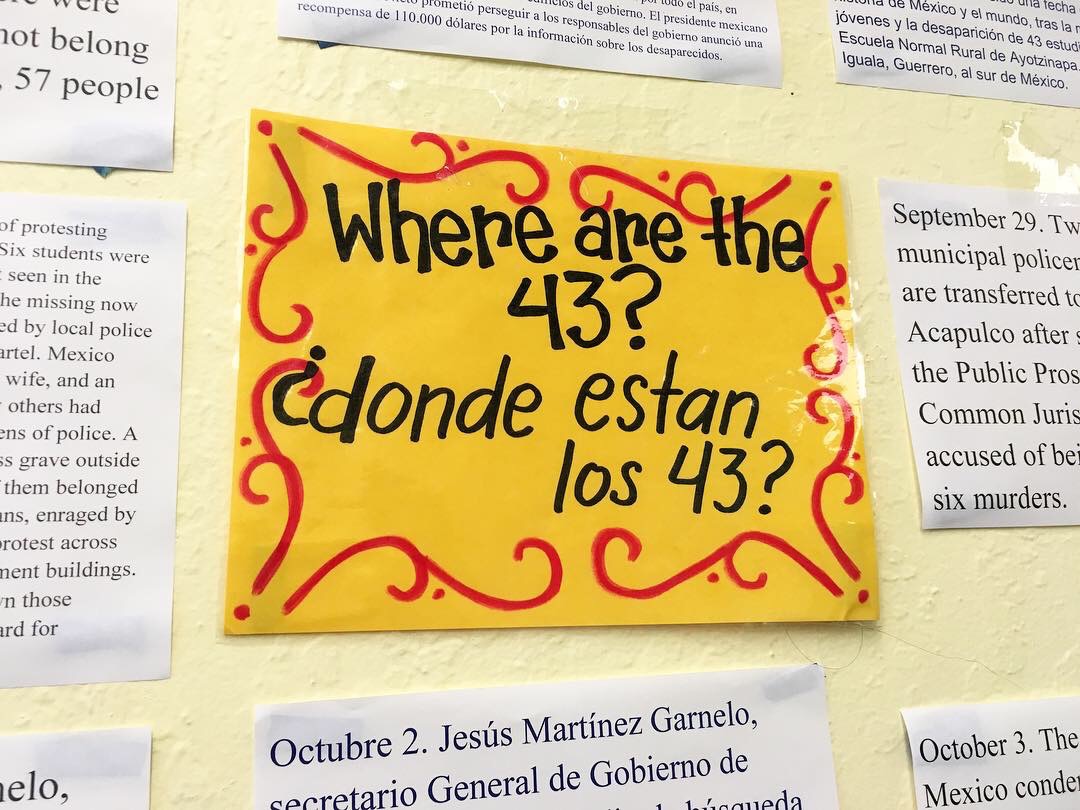 ere were
not belong
, 57 people
por todo el país, en
edificios del gobierno. El presidente mexicano
prometió perseguir a los responsables del gobierno anunció una
recompensa de 110.000 dólares por la información sobre los desaparecidos.
una fecha
historia de México y el mundo, tras la
jóvenes y la desaparición de 43 estudi
Escuela Normal Rural de Ayotzinapa.
Iguala, Guerrero, al sur de México.
of protesting
Six students were
t seen in the
he missing now
ed by local police
artel. Mexico
wife, and an
others had
ens of police. A
ss grave outside
them belonged
ans, enraged by
protest across
ment buildings.
wn those
ard for
Where are the
43?
¿donde estan
los 43?
September 29. Tw
municipal policem
are transferred to
Acapulco after s
the Public Pros
Common Juris
accused of bei
six murders.
nelo,
Octubre 2. Jesús Martínez Garnelo,
secretario General de Gobierno de
búsqueda
October 3. The
Mexico conde